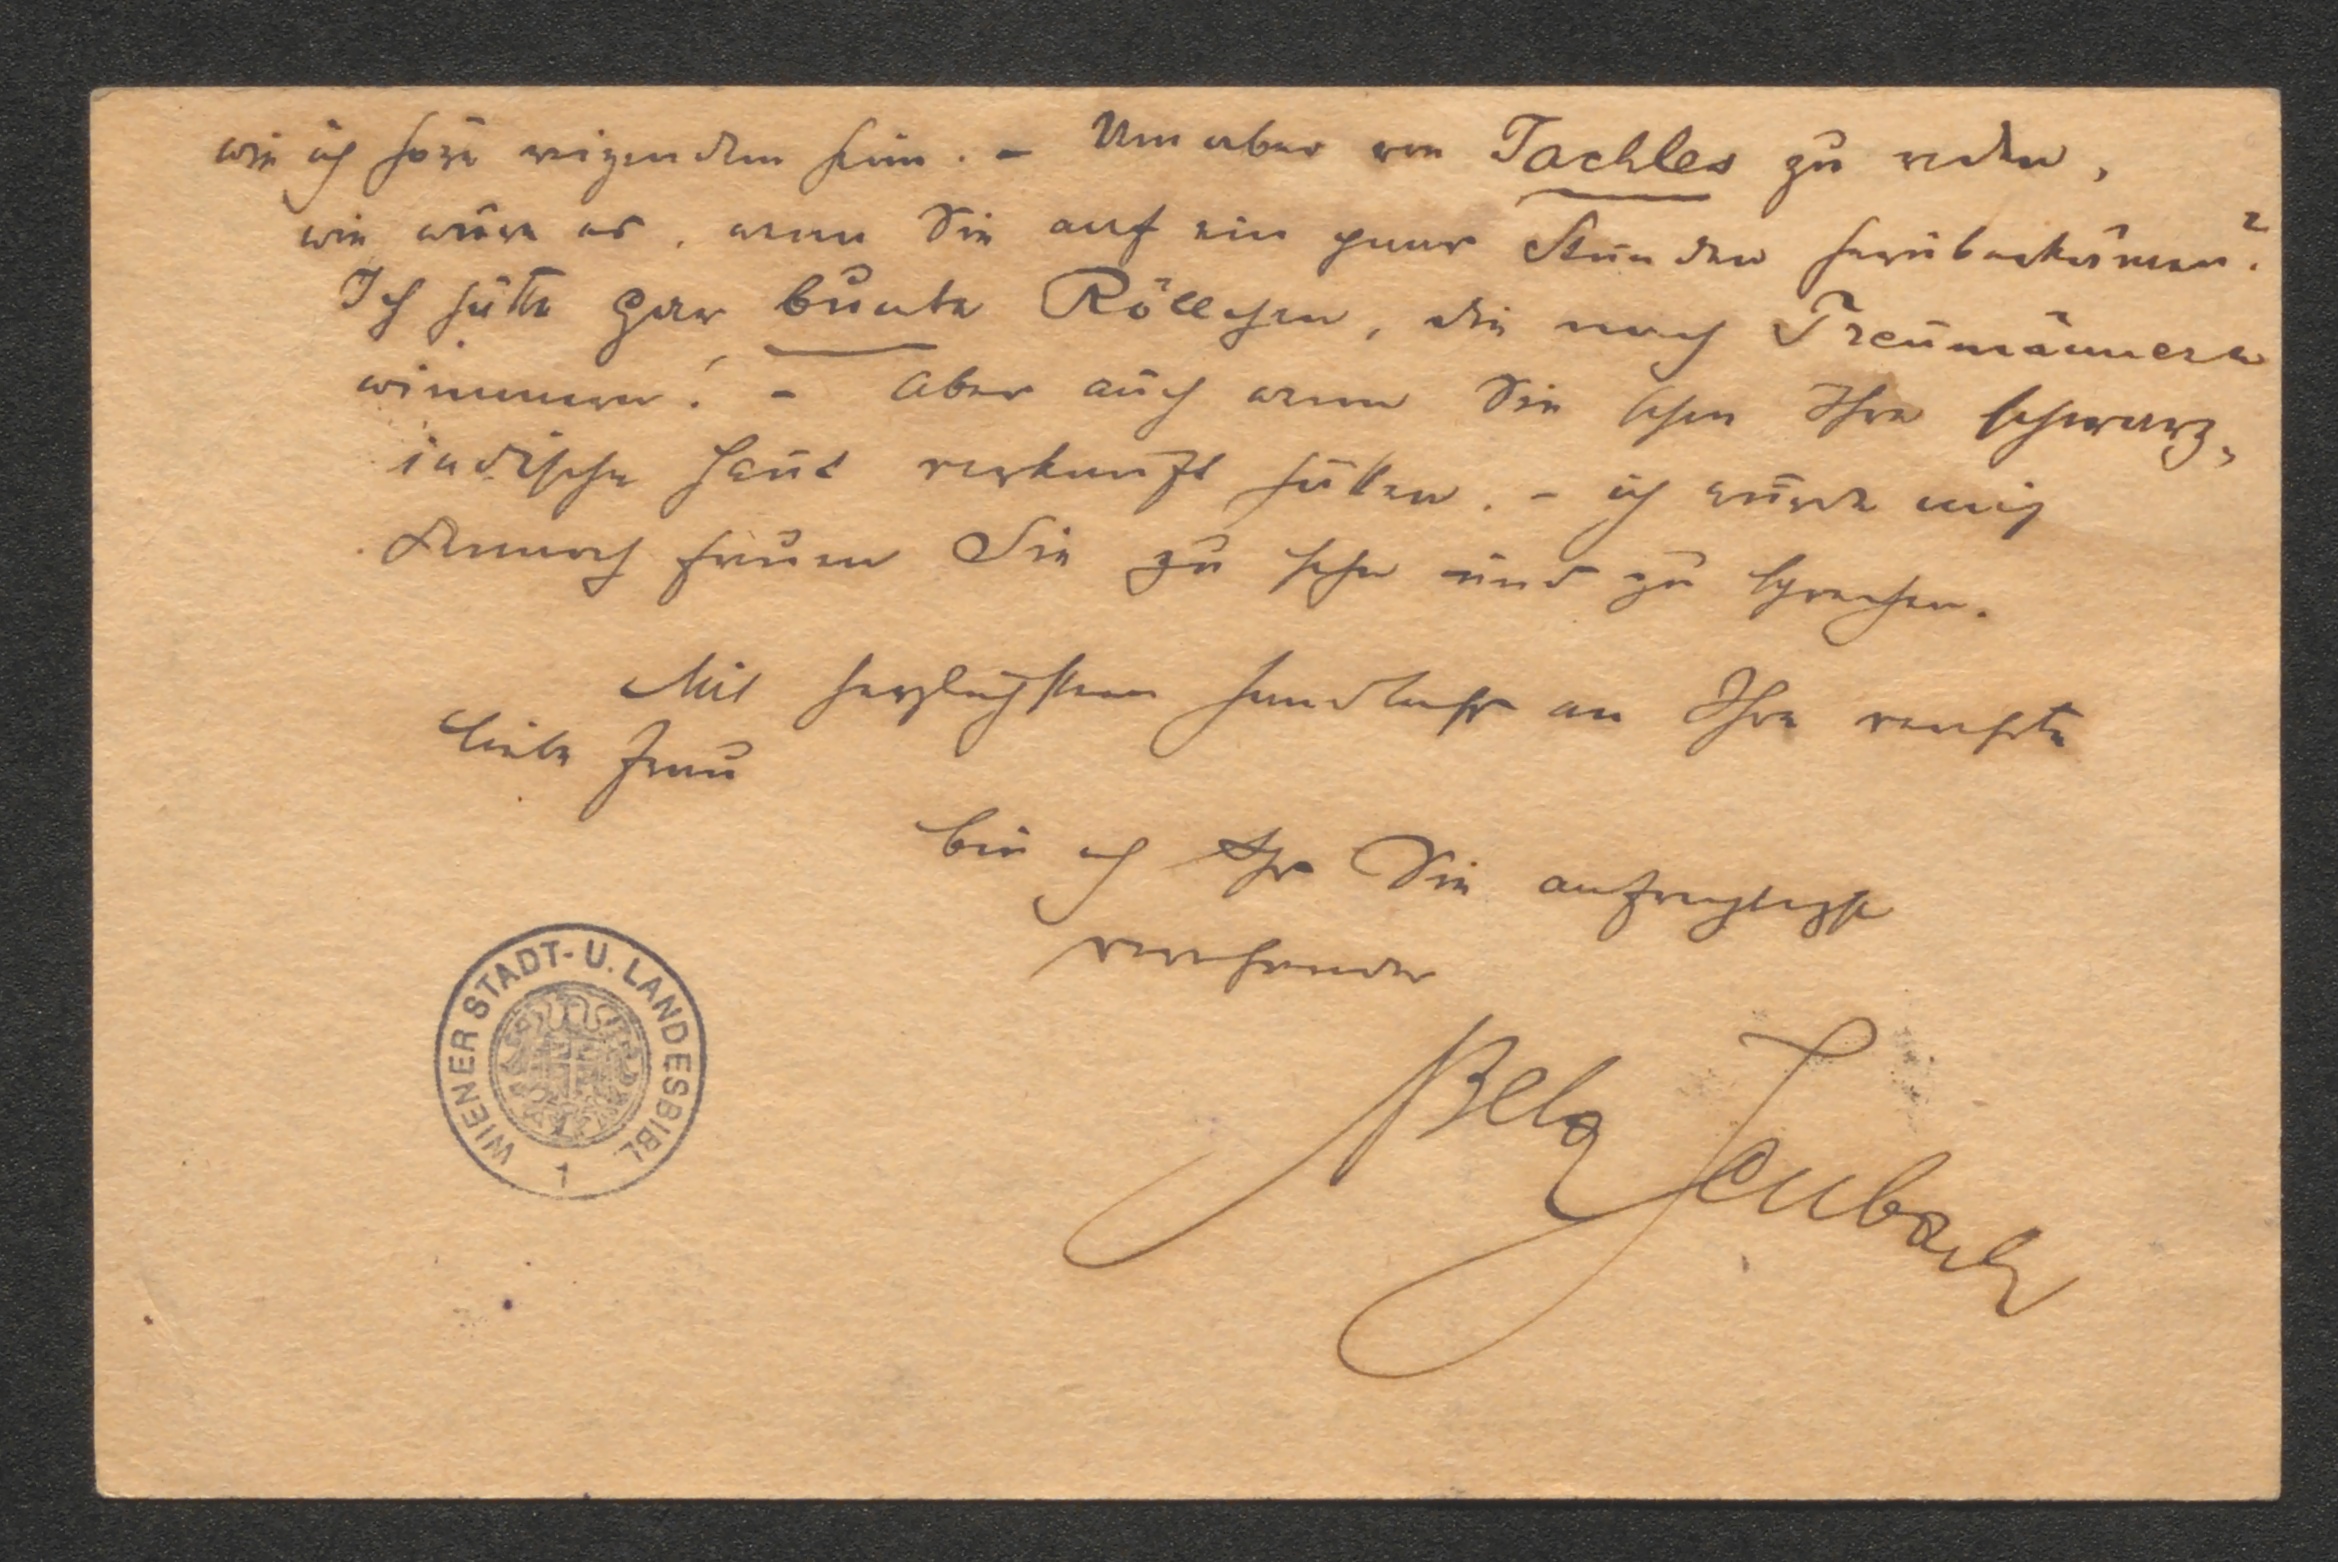 wie ich höre reizenden Heim. – Um aber von Tachles zu reden,
wie wäre es, wenn Sie auf ein paar Stunden herüberkämen?
Ich hätte gar bunte Röllchen, die nach Treumännern
wimmern! – Aber auch wenn Sie schon Ihre schwarz-
indische Haut verkauft hätten, – ich würde mich
dennoch freuen Sie zu sehn und zu sprechen.
Mit herzlichstem Handkuß an Ihre verehrte
liebe Frau
bin ich Ihr Sie aufrichtigst
verehrender
Bela Jenbach
WIENER STADT- U. LANDESBIBL.
1